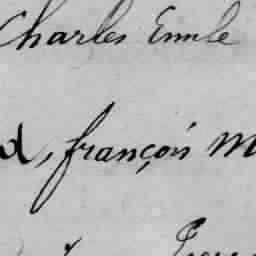 Charles Emile
, françois M